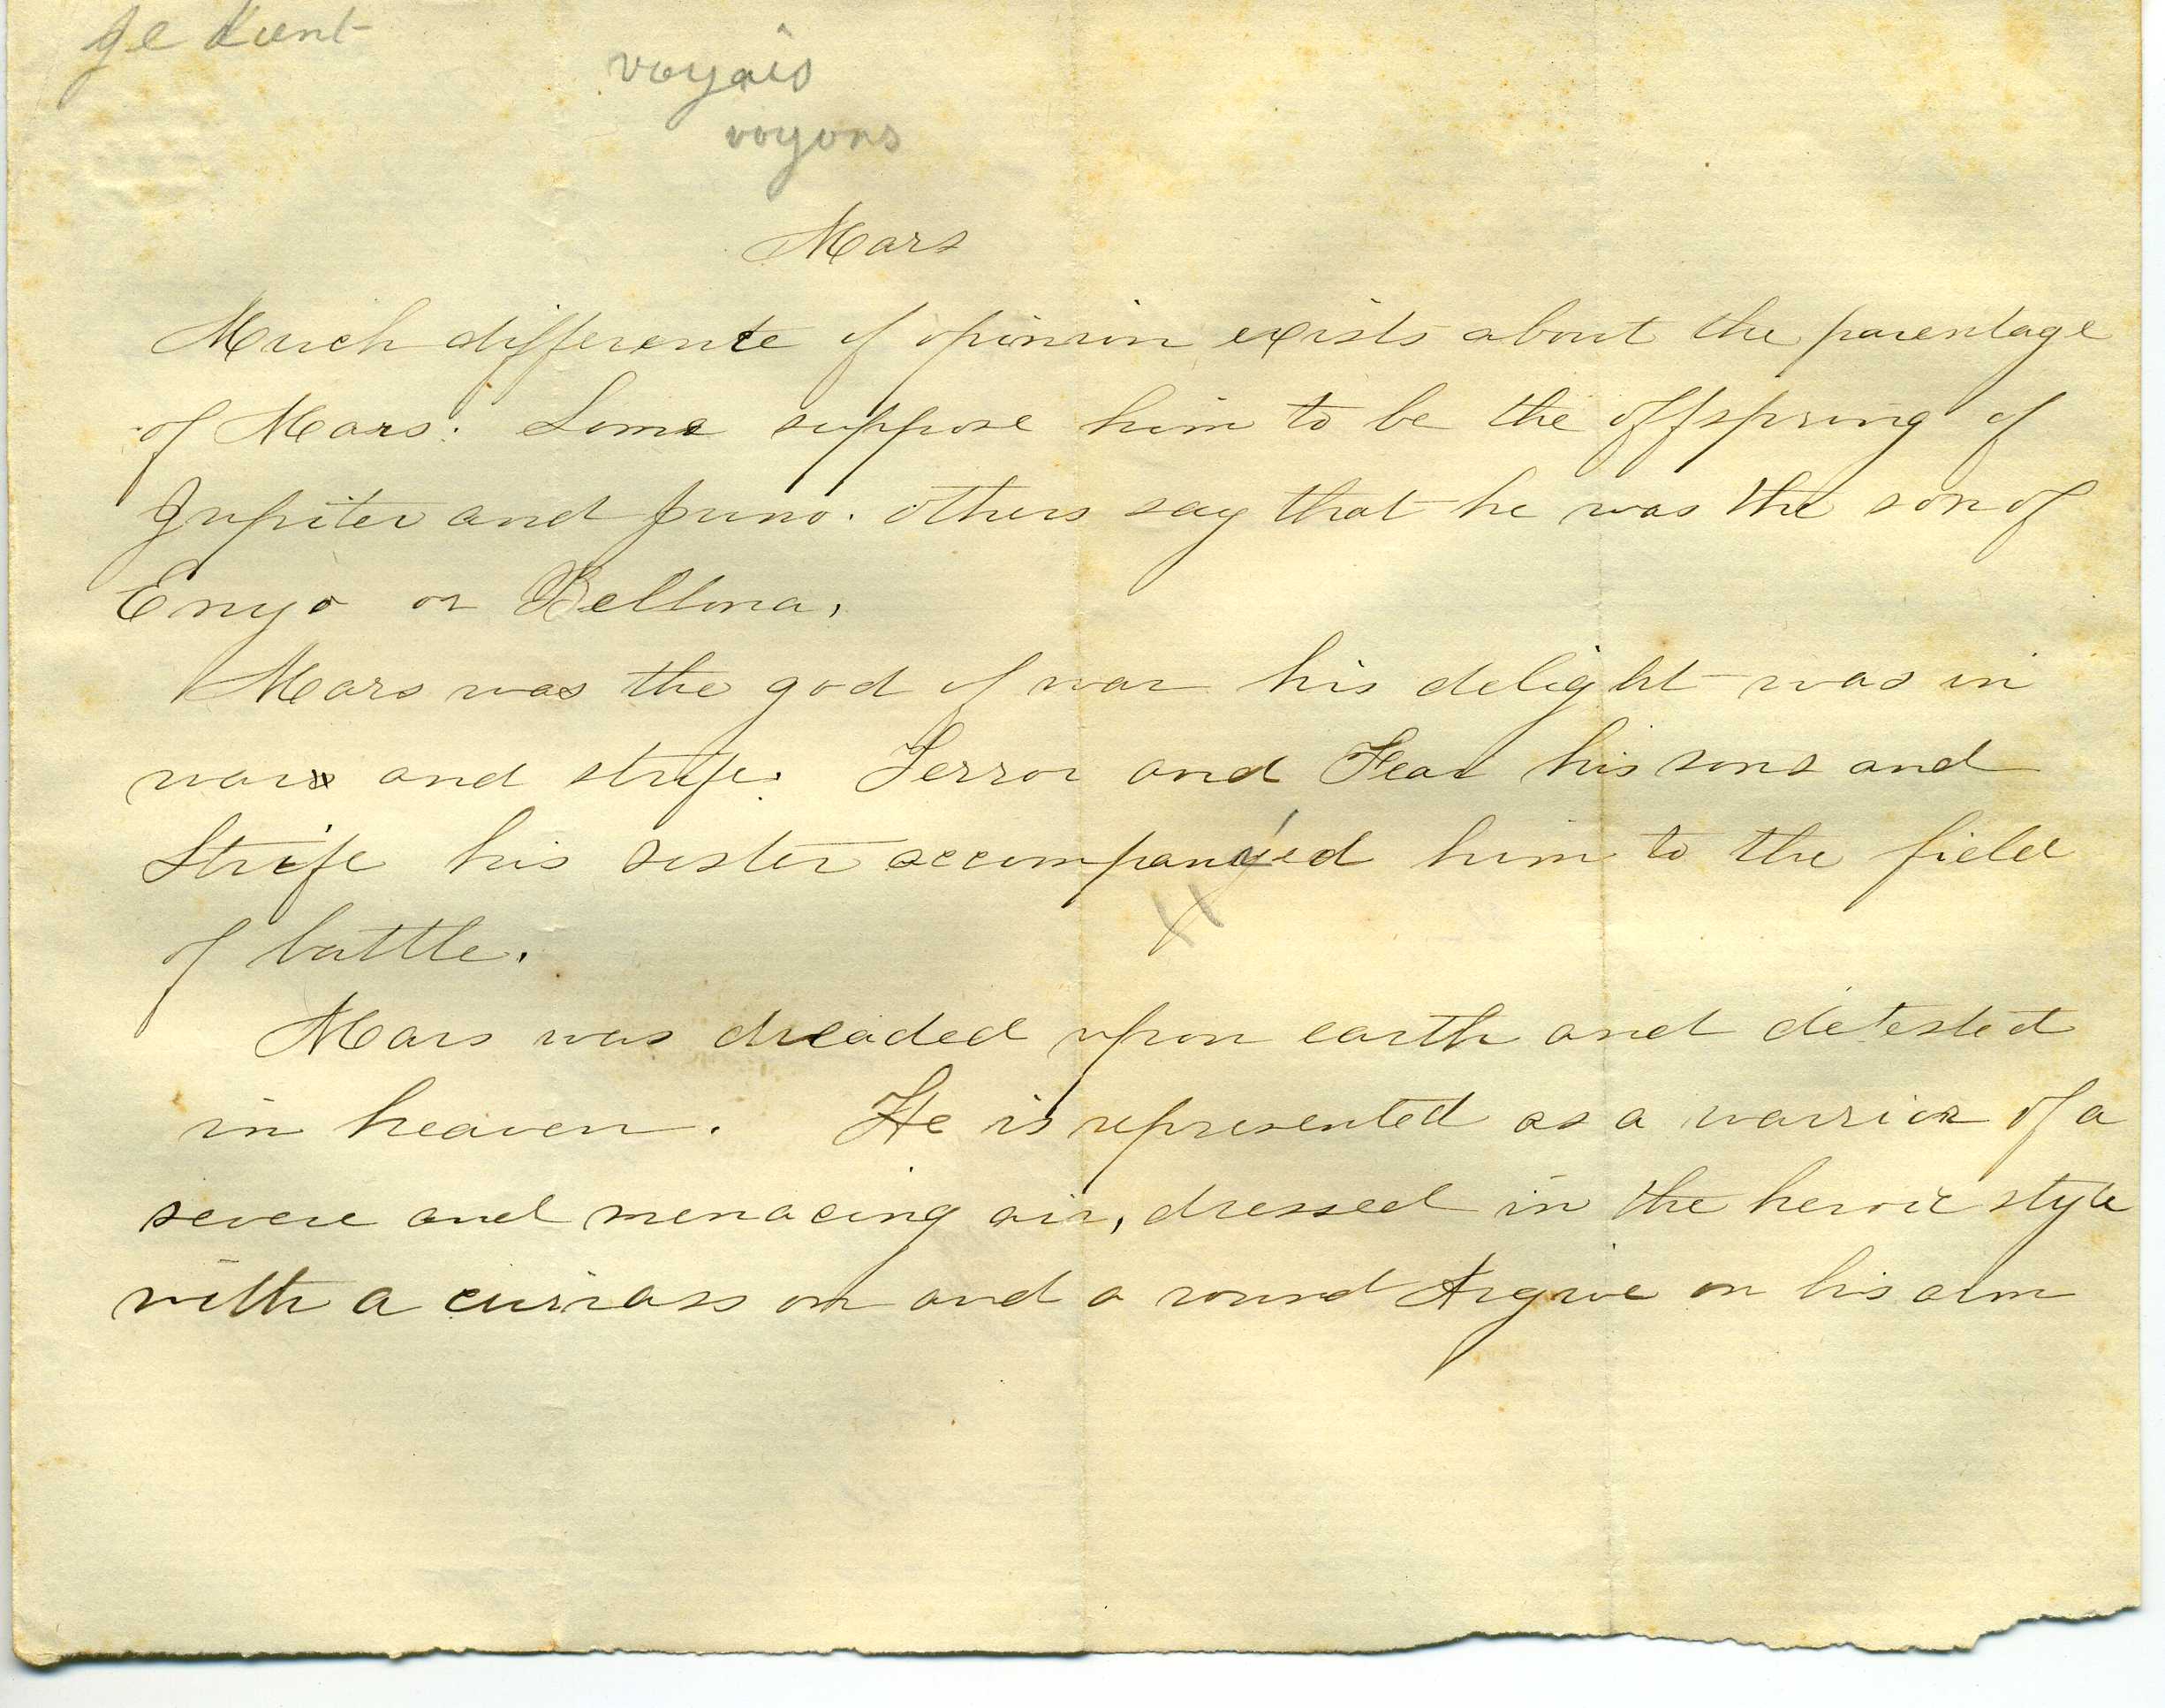 voyais
voyons
Mars
Much difference of opinion exists about the parentage
of Mars. Some suppose him to be the offspring of
Jupiter and Juno. others say that he was the son of
Enyo or Bellona.
Mars was the god of war his delight was in
war and strife. Terror and Fear his sons and
Strife his sister accompanied him to the field
of battle.
Mars was dreaded upon earth and detested
in heaven. He is represented as a warrior of a
severe and menacing air, dressed in the heroic style
with a cuirass on and a round Argive on his arm